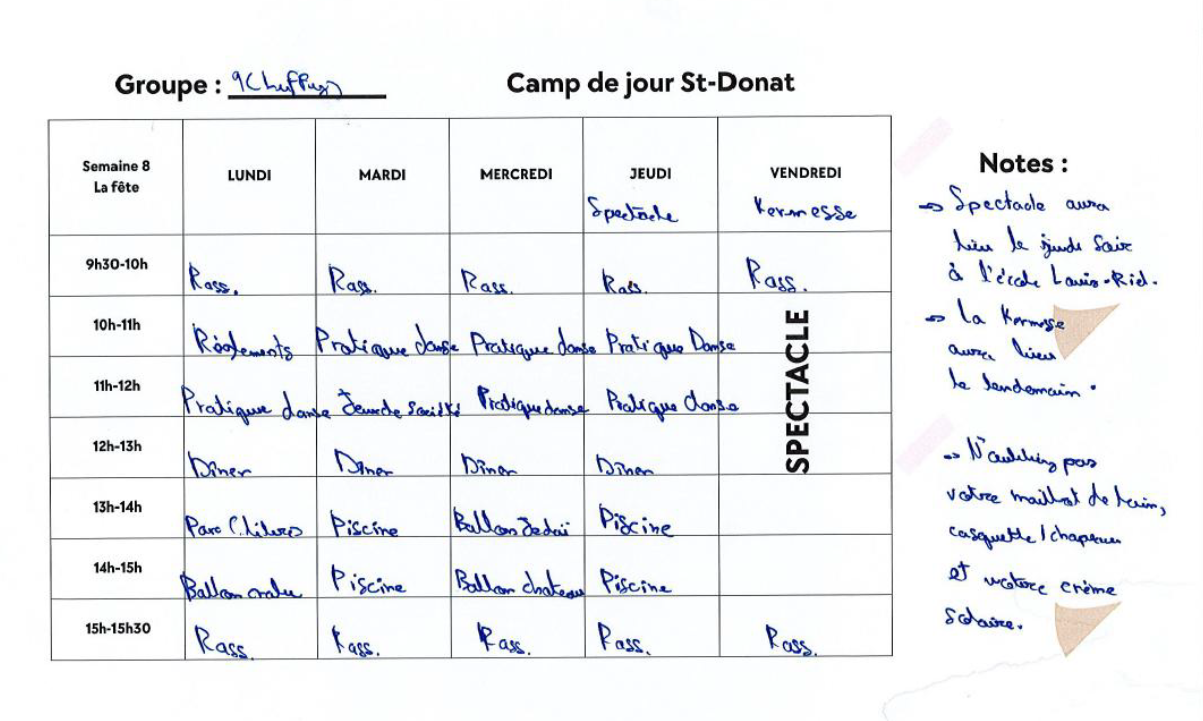 Groupe :
Camp de jour St-Donat
Semaine 8
La fête
LUNDI
MARDI
MERCREDI
JEUDI
Spectacle
VENDREDI
Kermesse
9h30-10h
Rass.
Rass.
Rass.
Rass.
Rass.
10h-11h
Règlements
Pratique danse
Pratique danse
Pratique Danse
11h-12h
Pratique danse
Jeux de société
Pratique danse
Pratique danse
12h-13h
Dîner
Dîner
Dîner
Dîner
SPECTACLE
13h-14h
Parc
Piscine
Ballon
Piscine
14h-15h
Ballon
Piscine
Ballon chateau
Piscine
15h-15h30
Rass.
Rass.
Rass.
Rass.
Rass.
Notes :
→ Spectacle aura
lieu le jeudi soir
à l'école Louis-Riel.
→ La Kermesse
aura lieu
le lendemain.
→ pas
votre maillot de bain,
casquette / chapeau
et votre crème
solaire.